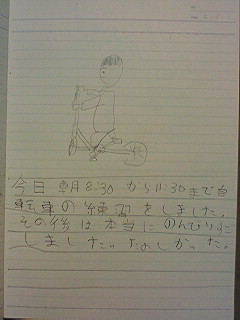 今日 朝8:30 から11:30まで自
転車の練習をしました。
その後は本当にのんびりに
しました。たのしかった。